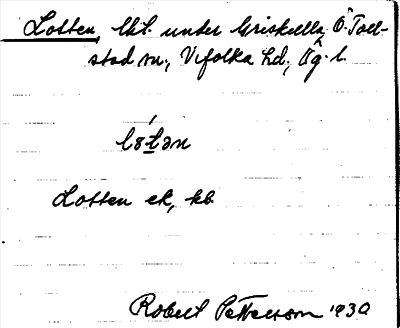 Lotten, lht. under Griskulla, Ö. Toll-
stad sn., Vifolka hd., Ög. l.
Lotten ek, kb
Robert Petterson 1930